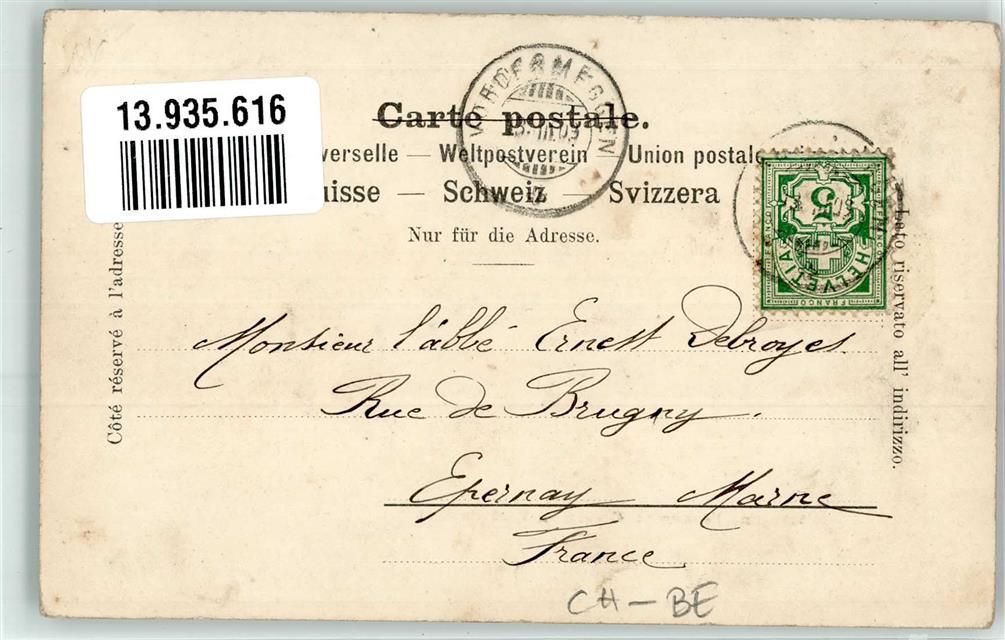 13.935.616
Carte postale.
verselle — Weltpostverein — Union postale
uisse — Schweiz — Svizzera
Nur für die Adresse.
Côté réservé à l'adresse
Lato riservato all' indirizzo.
5
HELVETIA
FRANCO
Monsieur l'abbé Ernest Debroyes
Rue de Brugny.
Epernay Marne
France
CH-BE